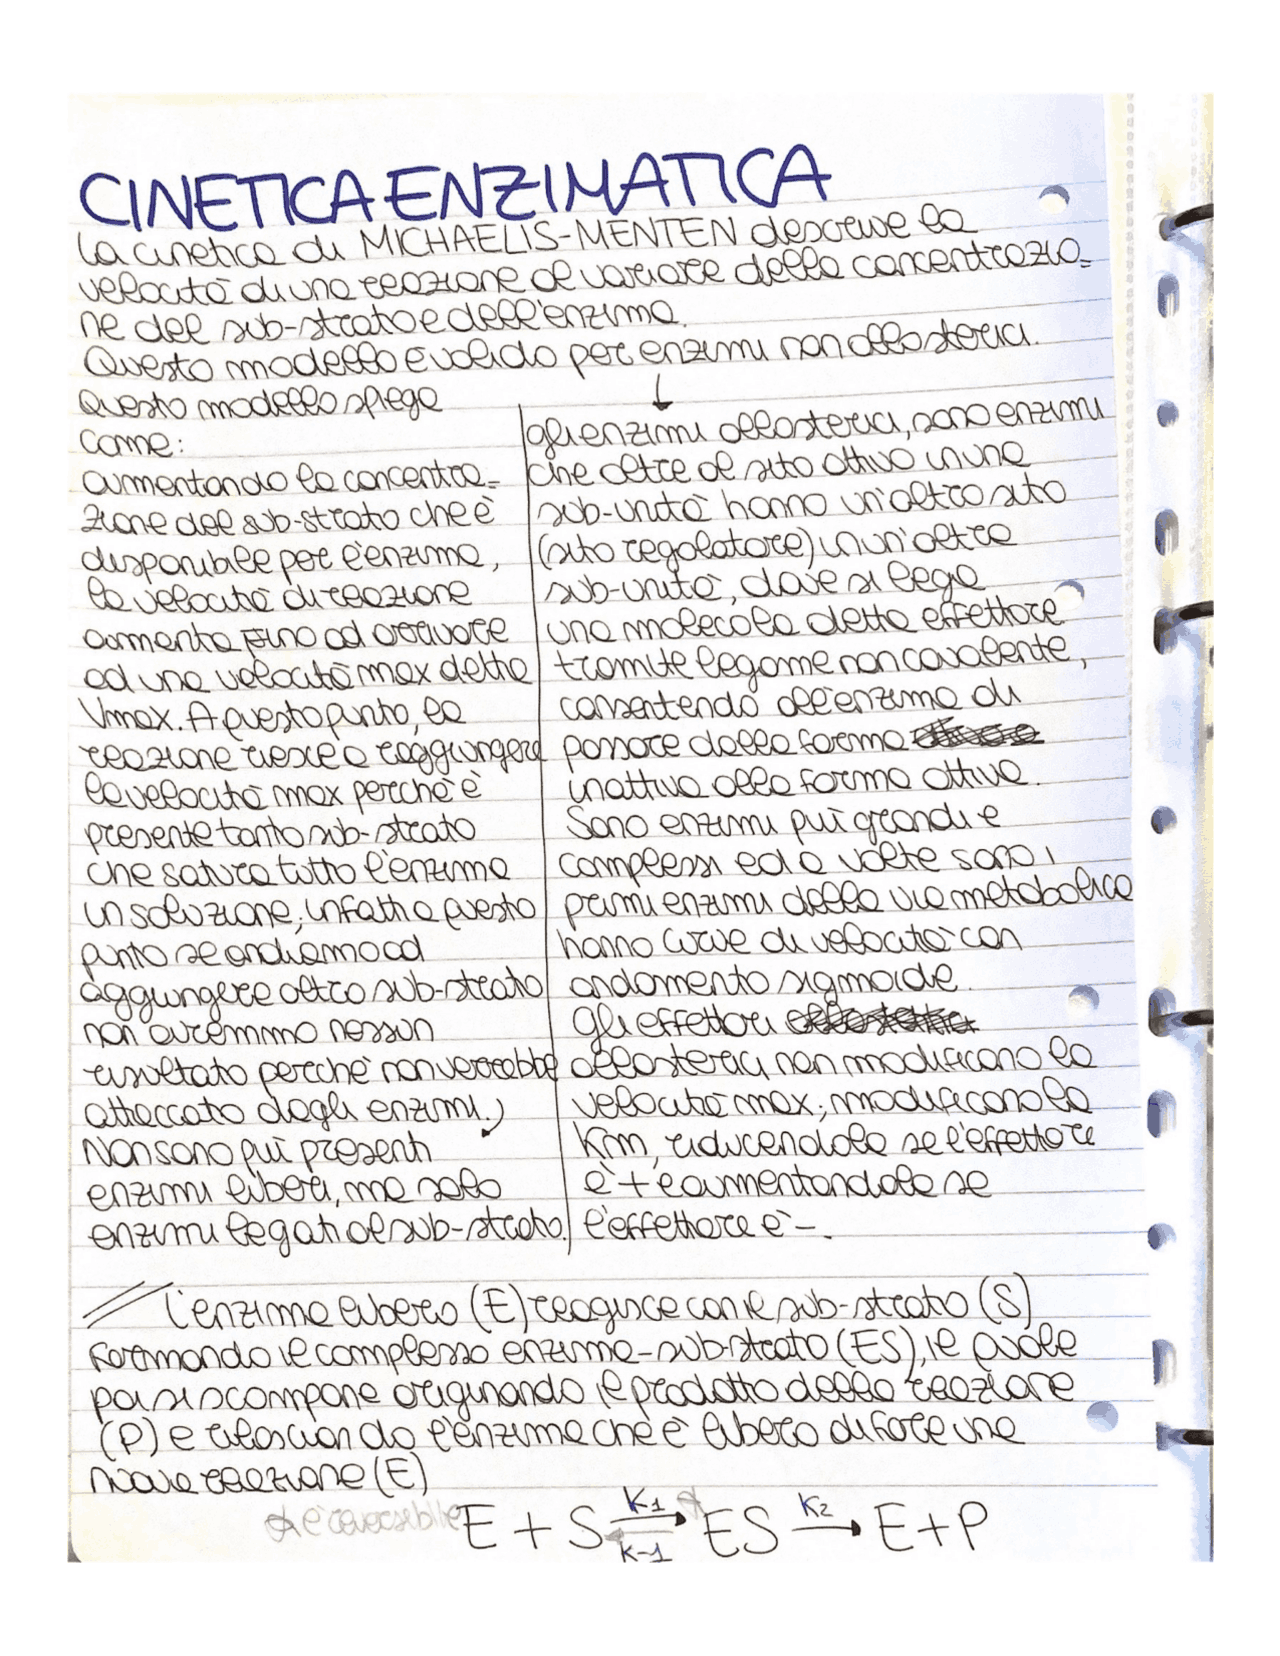 CINETICA ENZIMATICA
La cinetica di MICHAELIS-MENTEN descrive la
velocità di una reazione al variare della concentrazio=
ne del sub-strato e dell'enzima.
Questo modello è valido per enzimi non allosterici.
↓
Questo modello spiega
come:
aumentando la concentra=
zione del sub-strato che è
disponibile per l'enzima,
la velocità di reazione
aumenta fino ad arrivare
ad una velocità max detta
Vmax. A questo punto, la
reazione riesce a raggiungere
la velocità max perché è
presente tanto sub-strato
che satura tutto l'enzima
in soluzione; infatti a questo
punto se andiamo ad
aggiungere altro sub-strato
non avremmo nessun
risultato perché non verrebbe
attaccato dagli enzimi.
Non sono più presenti
enzimi liberi, ma solo
enzimi legati al sub-strato.
gli enzimi allosterici, sono enzimi
che oltre al sito attivo in una
sub-unità hanno un'altro sito
(sito regolatore) in un'altra
sub-unità, dove si lega
una molecola detta effettore
tramite legame non covalente,
consentendo all'enzima di
passare dalla forma
inattiva alla forma attiva.
Sono enzimi più grandi e
complessi ed a volte sono i
primi enzimi della via metabolica
hanno curve di velocità con
andamento sigmoide.
gli effettori
allosterici non modificano la
velocità max; modificano la
Km, riducendola se l'effettore
è + e aumentandola se
l'effettore è -.
// L'enzima libero (E) reagisce con il sub-strato (S)
formando il complesso enzima-sub-strato (ES), il quale
poi si scompone originando il prodotto della reazione
(P) e rilasciando l'enzima che è libero di fare una
nuova reazione (E)
è reversibile E + S ⇄ ES → E + P
K1 K-1 K2